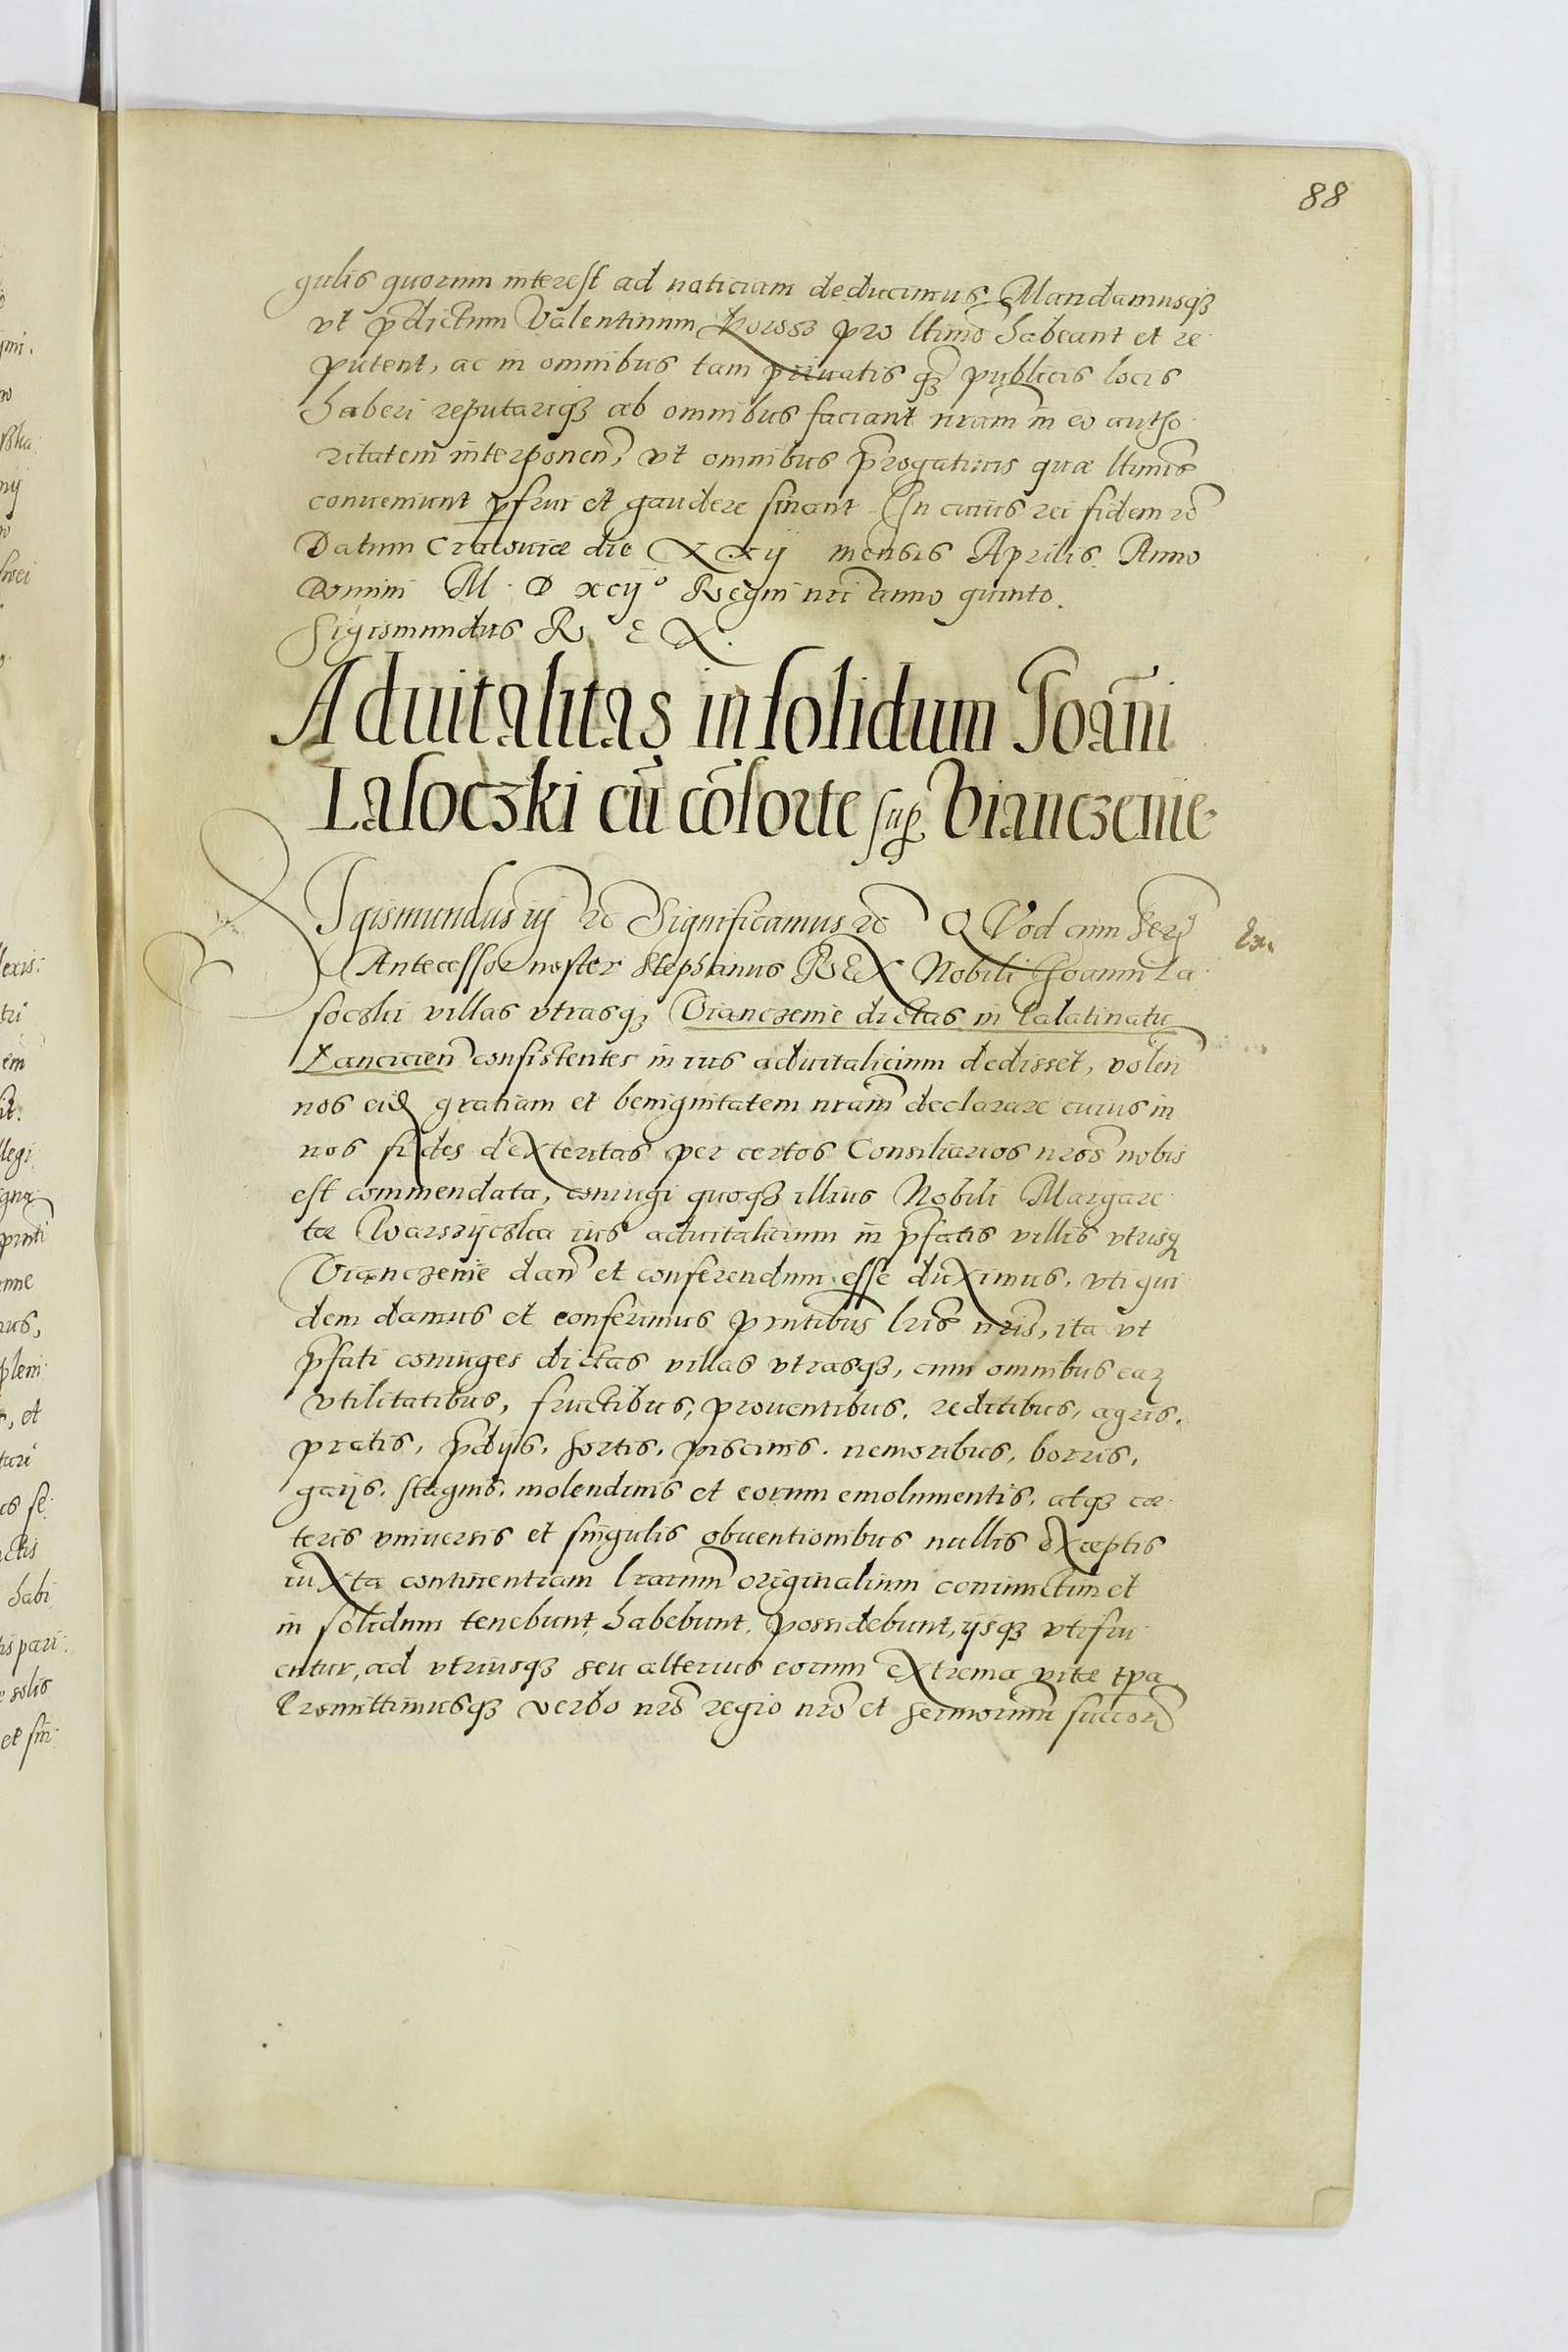 88
gulis quorum interest ad noticiam deducimus, Mandamusq3
vt p̄dictum Valentinum Korssz pro ltimo habeant et re
putent, ac in omnibus tam priuatis q3 publicis locis
haberi reputariq3 ab omnibus faciant nram̄ in eo autho
ritatem interponen̄, vt omnibus p̄rogatiuis quæ ltimis
conueniunt ꝑfrui et gaudere sinant. In cuius rei fidem rc̄
Datum Cracouiæ die XXij mensis Aprilis. Anno
Domini M. D xcijº Regni nri anno quinto.
Sigismundus R E X.
Aduitalitas in solidum Joan̄i
Lasoczki cū cōsorte suꝑ Vianczenie.
SIgismundus iij rc̄ Significamus rc̄ QVod cum Ser̄
Ex.
Antecessor noster Stephanus REX Nobili Joanni La
soczki villas vtrasq3 Vianczenie dictas in Palatinatu
Lancicien̄ consistentes in ius aduitalicium dedisset, volen̄
nos eid gratiam et benignitatem nram̄ declarare cuius in
nos fides dexteritas per certos Consiliarios nros̄ nobis
est commendata, coniugi quoq3 illius Nobili Margare
tæ Warssijczka ius aduitalicium in p̄fatis villis vtrisq3
Vianczenie dan̄ et conferendum esse duximus, vti qui
dem damus et conferimus pn̄tibus lris̄ nris̄, ita vt
p̄fati coniuges dictas villas vtrasq3, cum omnibus eaꝝ
vtilitatibus, fructibus, prouentibus, reditibus, agris,
pratis, p̄dijs, hortis, piscinis, nemoribus, borris,
gaijs, stagnis, molendinis et eorum emolumentis, atq3 cæ
teris vniuersis et singulis obuentionibus nullis exceptis
iuxta continentiam lrarum̄ originalium coniunctim et
in solidum tenebunt, habebunt, possidebunt, ijsq3 vtifru
entur, ad vtriusq3 seu alterius eorum extrema vitæ tp̄a
Promittimusq3 verbo nro̅ regio nro̅ et Sermorum̄ succor̄